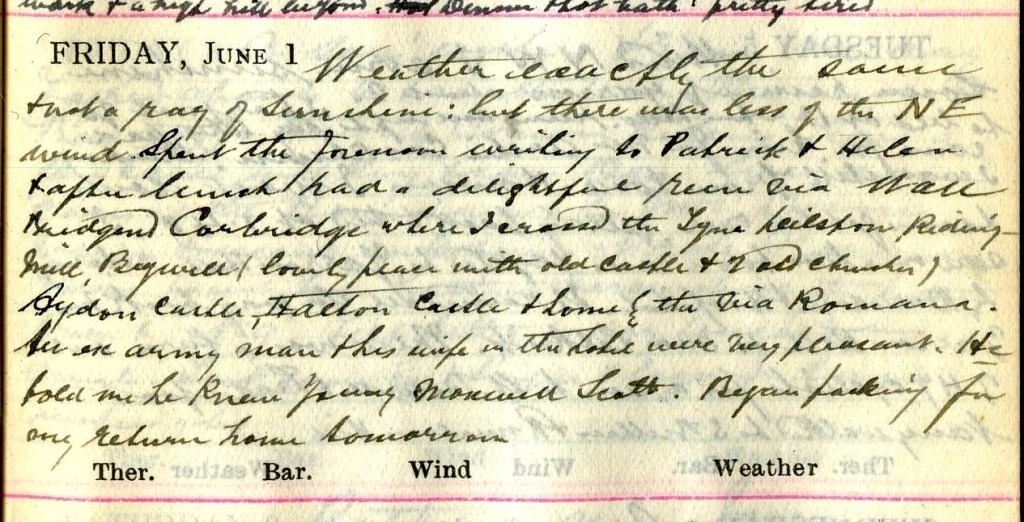 work & a high hill beyond. Dinner & hot bath: pretty tired
FRIDAY, JUNE 1 Weather exactly the same
& not a ray of Sunshine: but there was less of the NE
wind. Spent the forenoon writing to Patrick & Helen
& after lunch had a delightful run via Wall
Bridgend Corbridge where I crossed the Tyne Riding
Mill, Bywell (lovely place with old castle & 2 old churches)
Aydon Castle, Halton Castle & home by the Via Romana.
An ex army man & his wife in the hotel were very pleasant. He
told me he knew young Maxwell Scott. Began packing for
my return home tomorrow
Ther. Bar. Wind Weather